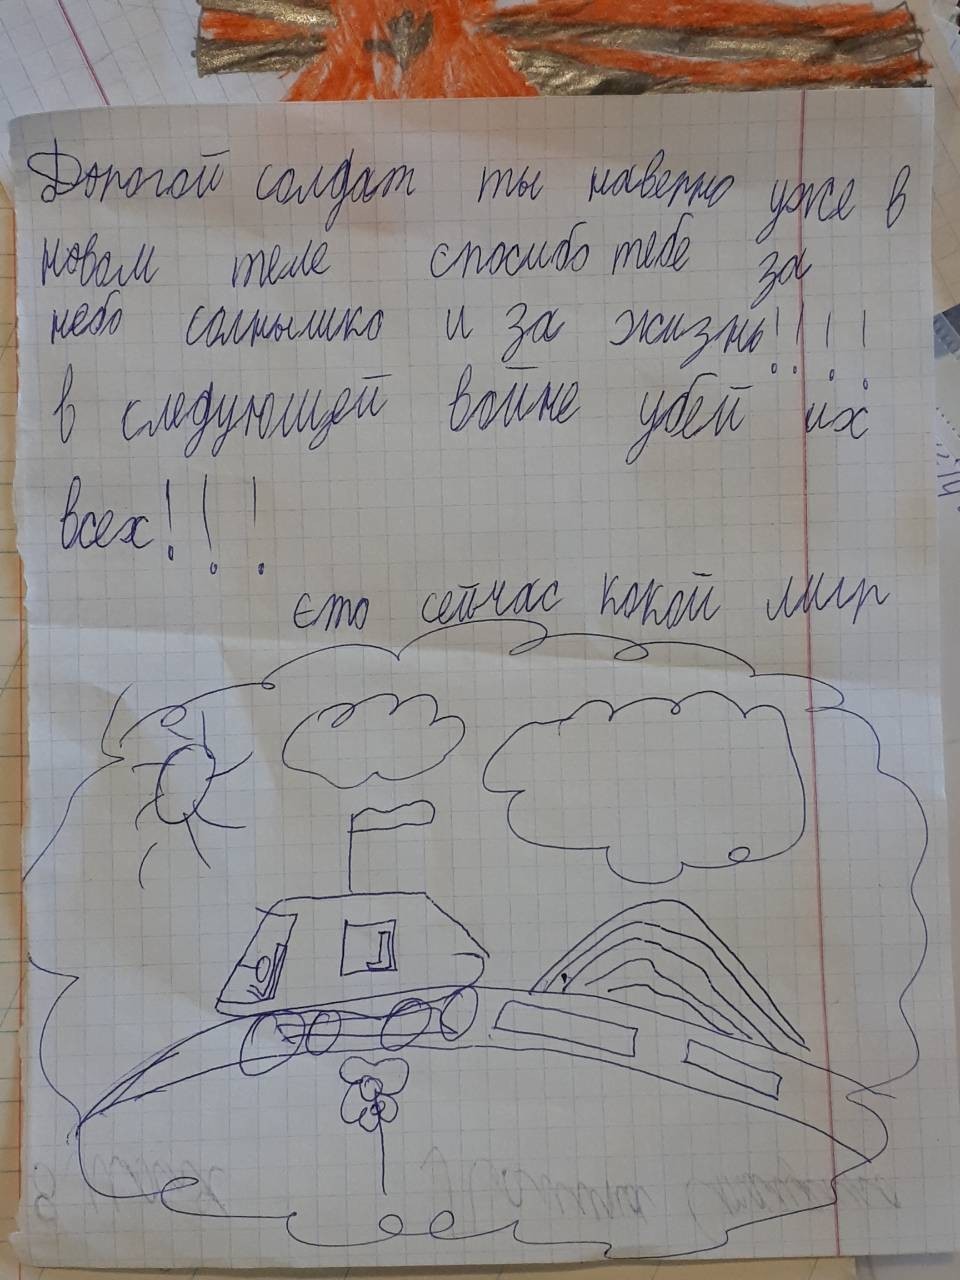 Дорогой солдат ты наверно уже в
новом теле спосибо тебе за
небо солнышко и за жизнь!!!!
в следующей войне убей их
всех!!!
єто сейчас какой мир